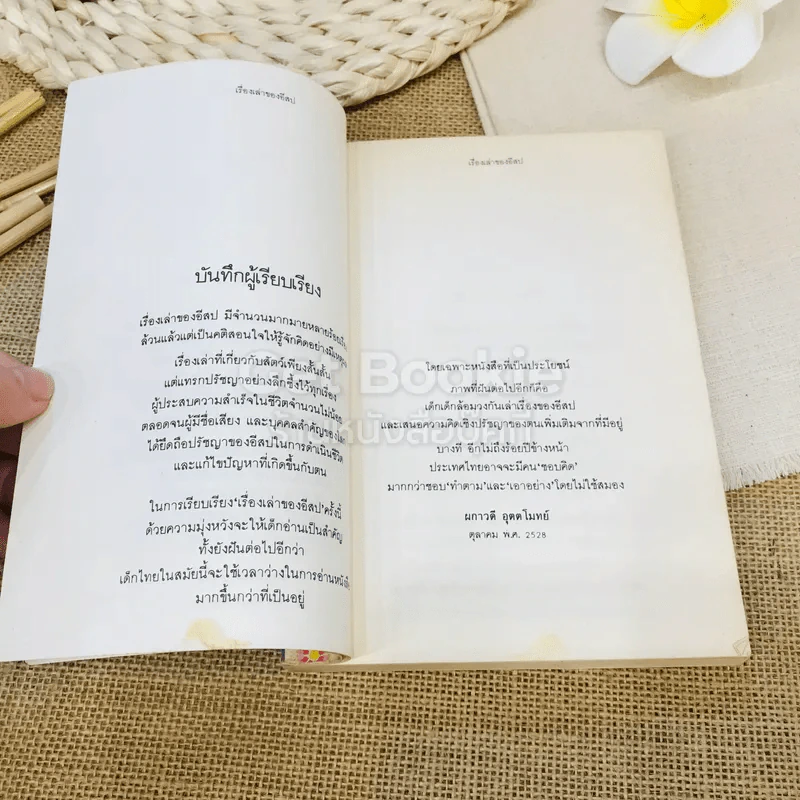 เรื่องเล่าของอีสป
บันทึกผู้เรียบเรียง
เรื่องเล่าของอีสป มีจำนวนมากมายหลายร้อย
ล้วนแล้วแต่เป็นคติสอนใจให้รู้จักคิดอย่าง
เรื่องเล่าที่เกี่ยวกับสัตว์เพียงสั้นสั้น
แต่แทรกปรัชญาอย่างลึกซึ้งไว้ทุกเรื่อง
ผู้ประสบความสำเร็จในชีวิตจำนวนไม่น้อย
ตลอดจนผู้มีชื่อเสียง และบุคคลสำคัญของ
ได้ยึดถือปรัชญาของอีสปในการดำเนินชีวิต
และแก้ไขปัญหาที่เกิดขึ้นกับตน
ในการเรียบเรียง‘เรื่องเล่าของอีสป’ครั้งนี้
ด้วยความมุ่งหวังจะให้เด็กอ่านเป็นสำคัญ
ทั้งยังฝันต่อไปอีกว่า
เด็กไทยในสมัยนี้จะใช้เวลาว่างในการอ่าน
มากขึ้นกว่าที่เป็นอยู่
เรื่องเล่าของอีสป
โดยเฉพาะหนังสือที่เป็นประโยชน์
ภาพที่ฝันต่อไปอีกก็คือ
เด็กเด็กล้อมวงกันเล่าเรื่องของอีสป
และเสนอความคิดเชิงปรัชญาของตนเพิ่มเติมจากที่มีอยู่
บางที อีกไม่ถึงร้อยปีข้างหน้า
ประเทศไทยอาจจะมีคน‘ชอบคิด’
มากกว่าชอบ‘ทำตาม’และ‘เอาอย่าง’โดยไม่ใช้สมอง
ผกาวดี อุตตโมทย์
ตุลาคม พ.ศ. 2528